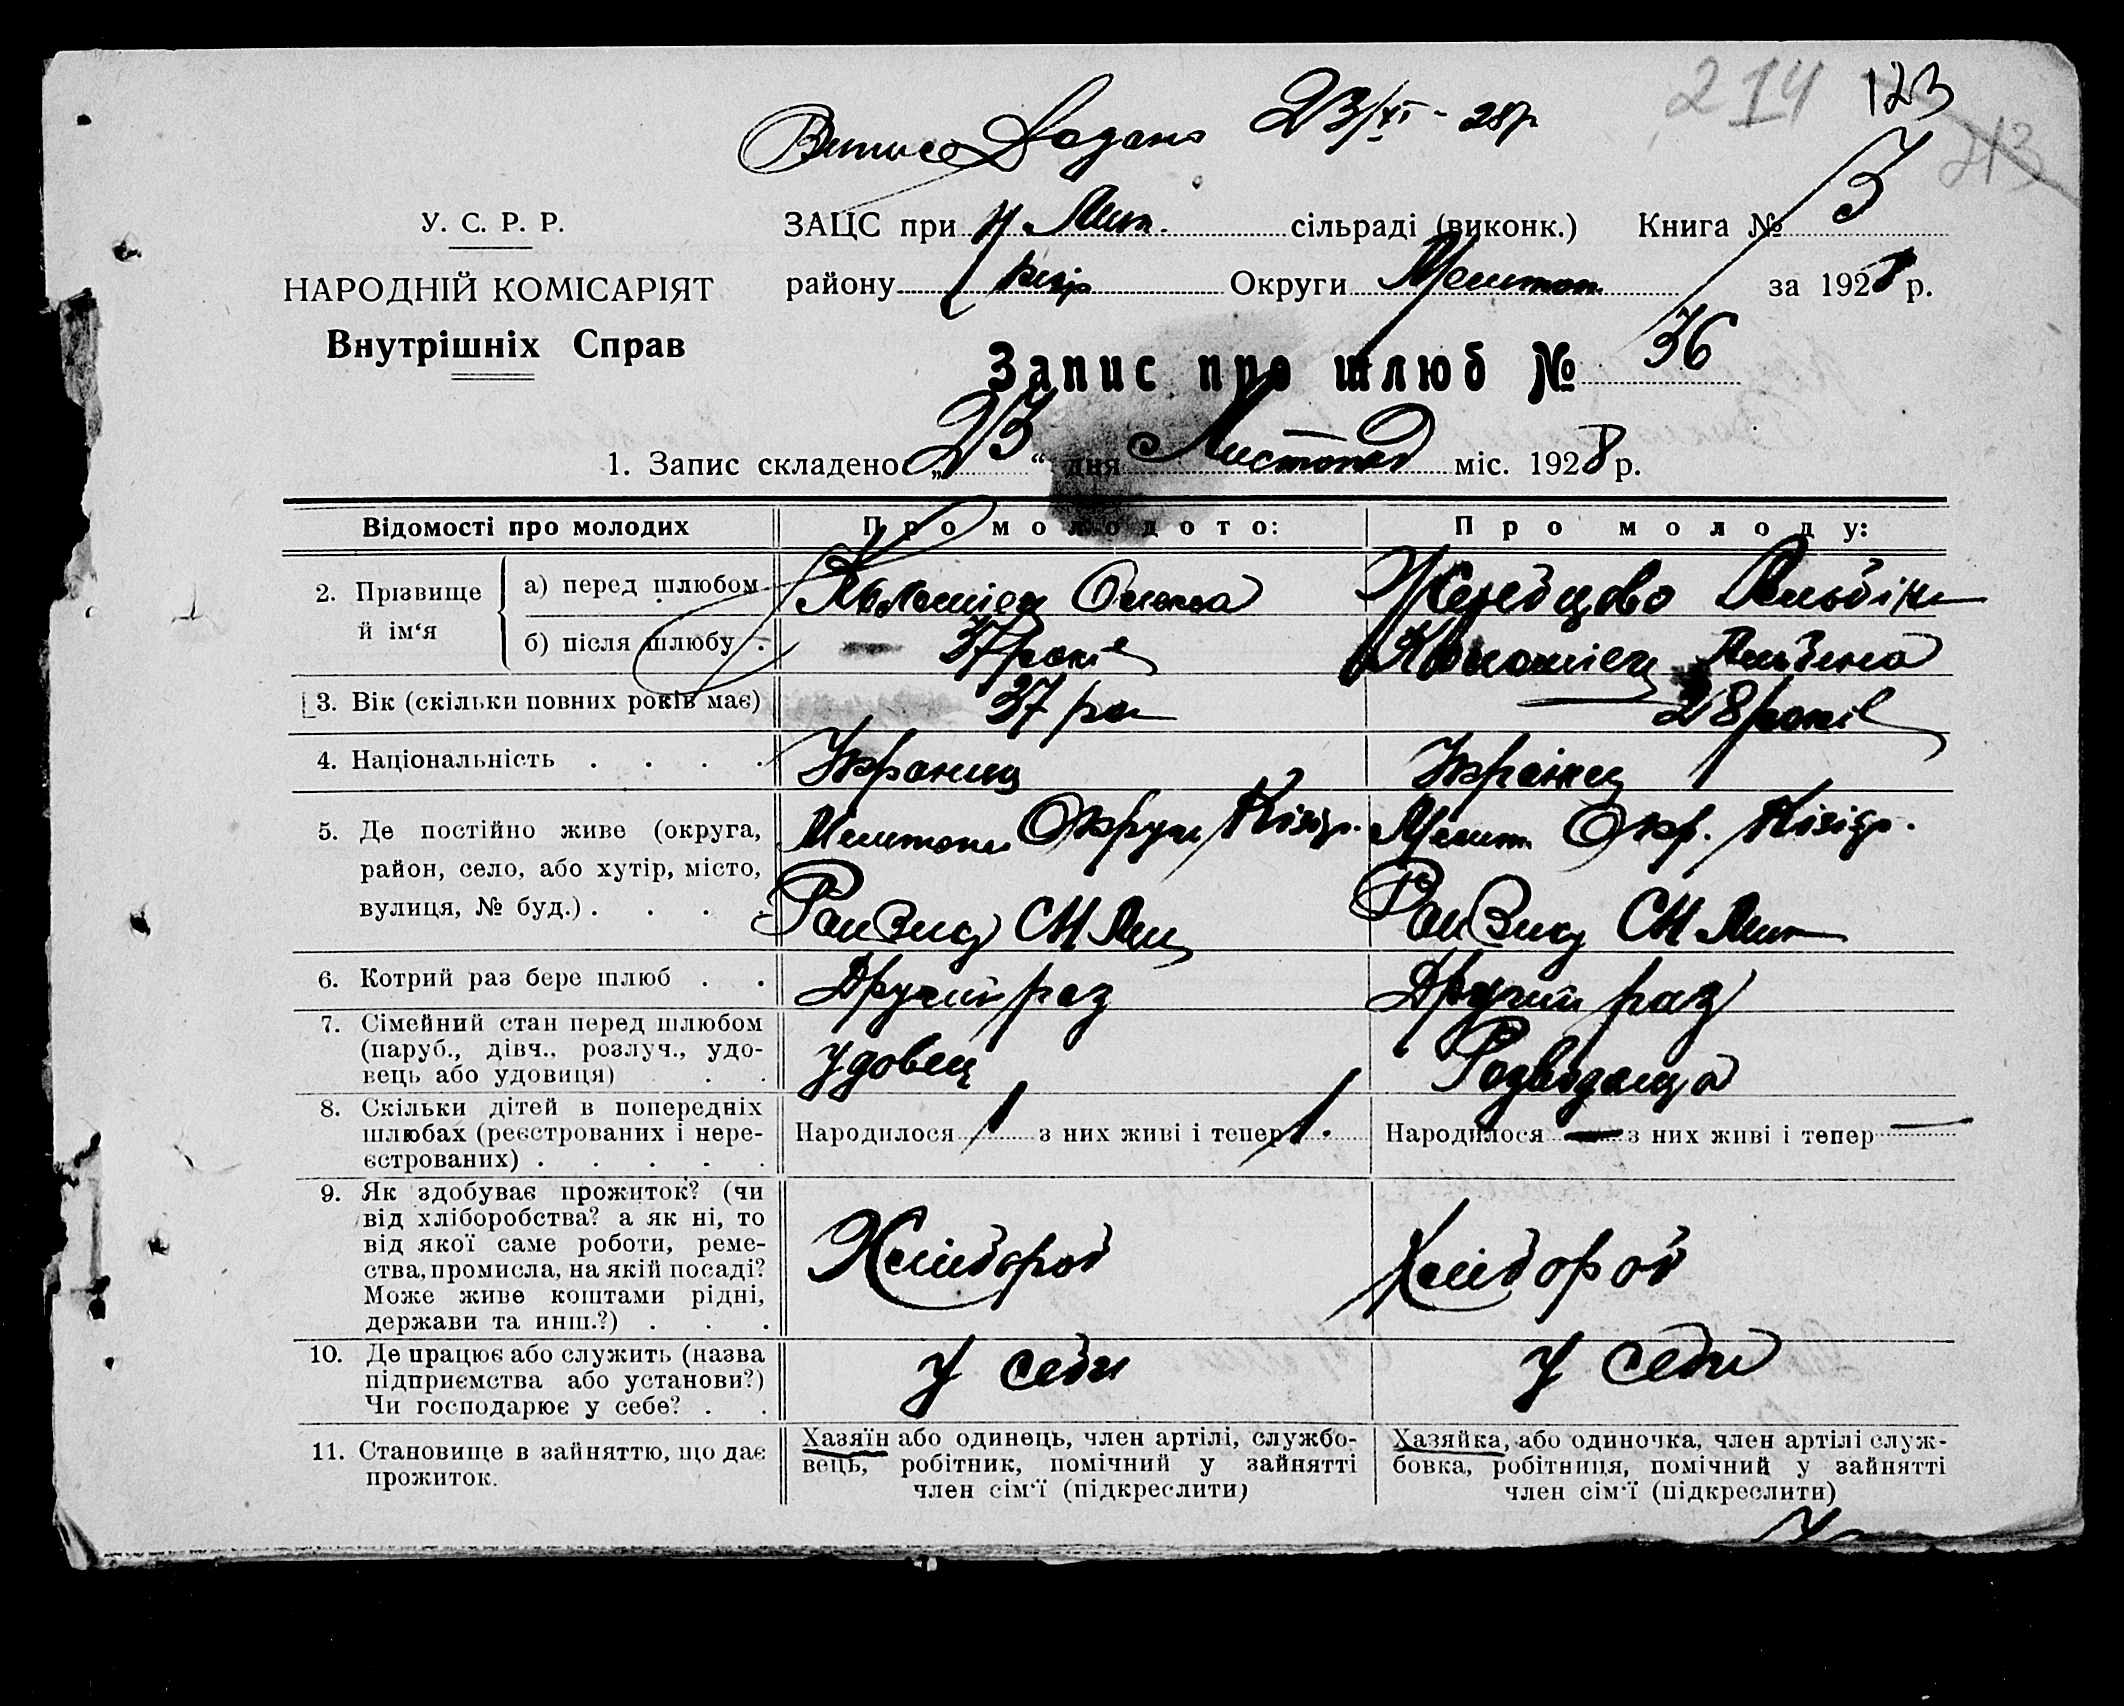 214 123
Випись Додано 23/XI - 28 р
213
У. С. Р. Р. ЗАЦС при Н. Лип. сільраді (виконк.) Книга № 3
НАРОДНІЙ КОМІСАРІЯТ району Округи Мелитоп. за 1928 р.
Внутрішніх Справ
Запис про шлюб № 36
1. Запис складено „23“ дня Листопад міс. 1928 р.
Відомості про молодих Про молодого: Про молоду:
2. Прізвище й ім‘я
а) перед шлюбом Коломієц Олекса Жеребцова Альбіна
б) після шлюбу 37 років Коломієц Альбина
3. Вік (скільки повних років має) 37 ро 28 років
4. Національність . . . . Українец Українец
5. Де постійно живе (округа, Мелитоп Округи Кізіяр. Мелит. Окр. Кізіяр.
район, село, або хутір, місто,
вулиця, № буд.) . . . . СН Лип СН Лип
6. Котрий раз бере шлюб . . Другий раз Другий раз
7. Сімейний стан перед шлюбом
(паруб., дівч., розлуч., удо-
вець або удовиця) . . удовец Розводница
8. Скільки дітей в попередніх
шлюбах (реєстрованих і нере- Народилося 1 з них живі і тепер 1. Народилося — з них живі і тепер —
єстрованих) . . . . .
9. Як здобуває прожиток? (чи
від хліборобства? а як ні, то
від якої саме роботи, реме-
ства, промисла, на якій посаді? Хлібороб Хлібороб
Може живе коштами рідні,
держави та инш.?) . . .
10. Де працює або служить (назва
підприємства або установи?) У себи У себи
Чи господарює у себе? . .
11. Становище в зайняттю, що дає
прожиток.
Хазяїн або одинець, член артілі, службо-
вець, робітник, помічний у зайнятті
член сім‘ї (підкреслити)
Хазяйка, або одиночка, член артілі служ-
бовка, робітниця, помічний у зайнятті
член сім‘ї (підкреслити)